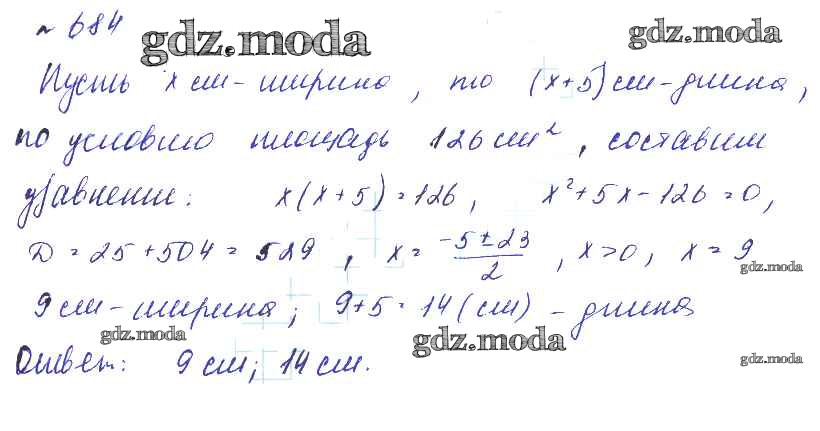 № 684
gdz.moda gdz.moda
Пусть x см - ширина, то (x+5) см - длина,
по условию площадь 126 см², составим
уравнение: x(x+5)=126, x²+5x-126=0,
D=25+504=529, x=(-5±23)/2, x>0, x=9
gdz.moda
9 см - ширина; 9+5=14 (см) - длина
gdz.moda gdz.moda
Ответ: 9 см; 14 см.
gdz.moda